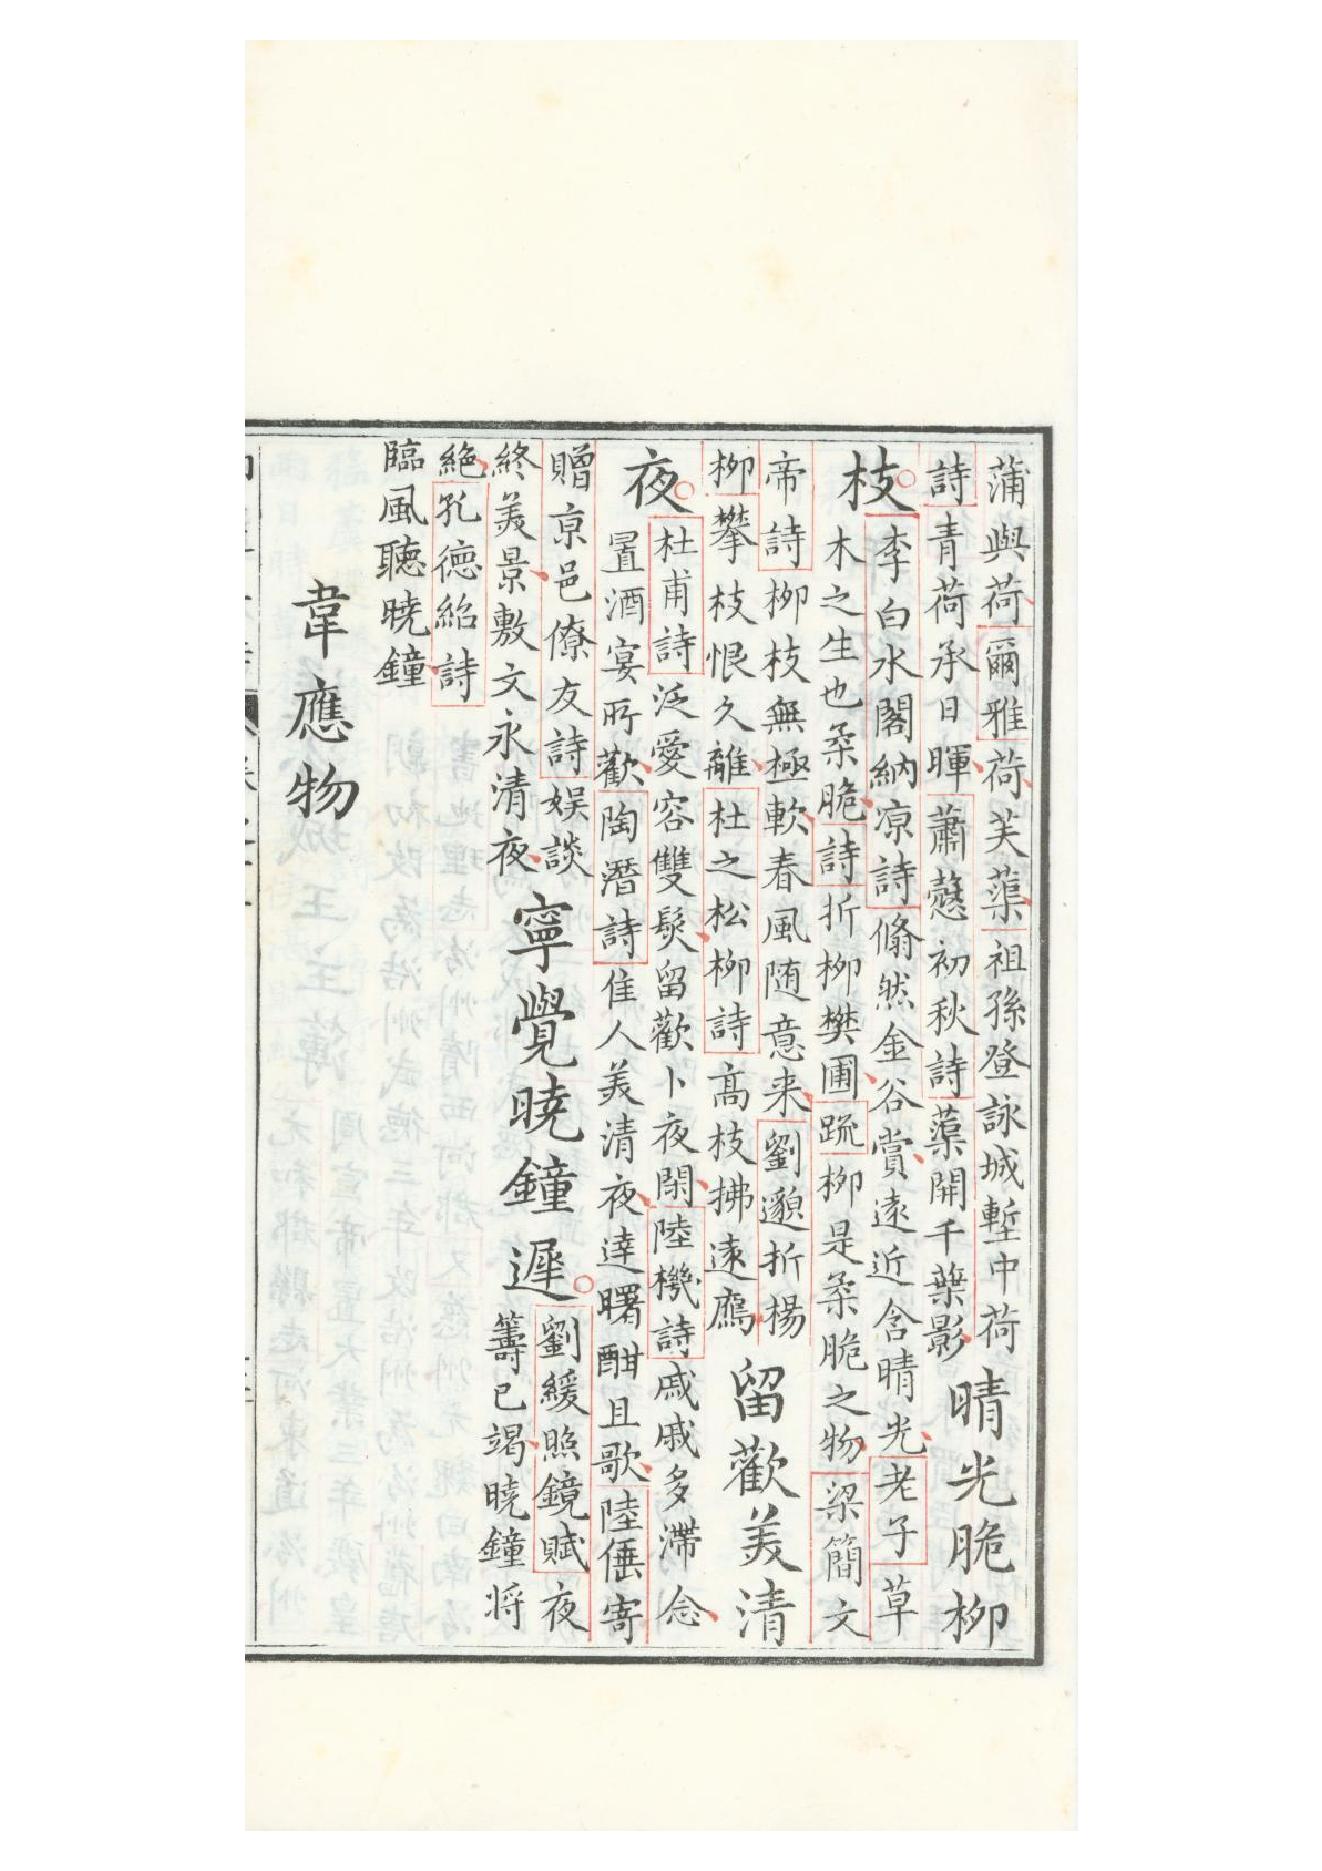 蒲與荷爾雅荷芙蕖祖孫登詠城塹中荷
詩青荷承日暉蕭慤初秋詩蕖開千葉影晴光脆柳
枝李白水閣納凉詩翛然金谷賞遠近含晴光老子草
木之生也柔脆詩折柳樊圃䟽柳是柔脆之物梁簡文
帝詩柳枝無極軟春風随意来劉邈折楊
柳攀枝恨久離杜之松柳詩高枝拂遠鴈留歡美清
夜杜甫詩泛愛容雙鬂留歡卜夜閑陸機詩戚戚多滯念
置酒宴所歡陶潛詩佳人美清夜逹曙酣且歌陸倕寄
贈京邑僚友詩娱談
終美景敷文永清夜寧覺曉鐘遲劉緩照鏡賦夜
籌已竭曉鐘将
絶孔德紹詩
臨風聽曉鐘
韋應物